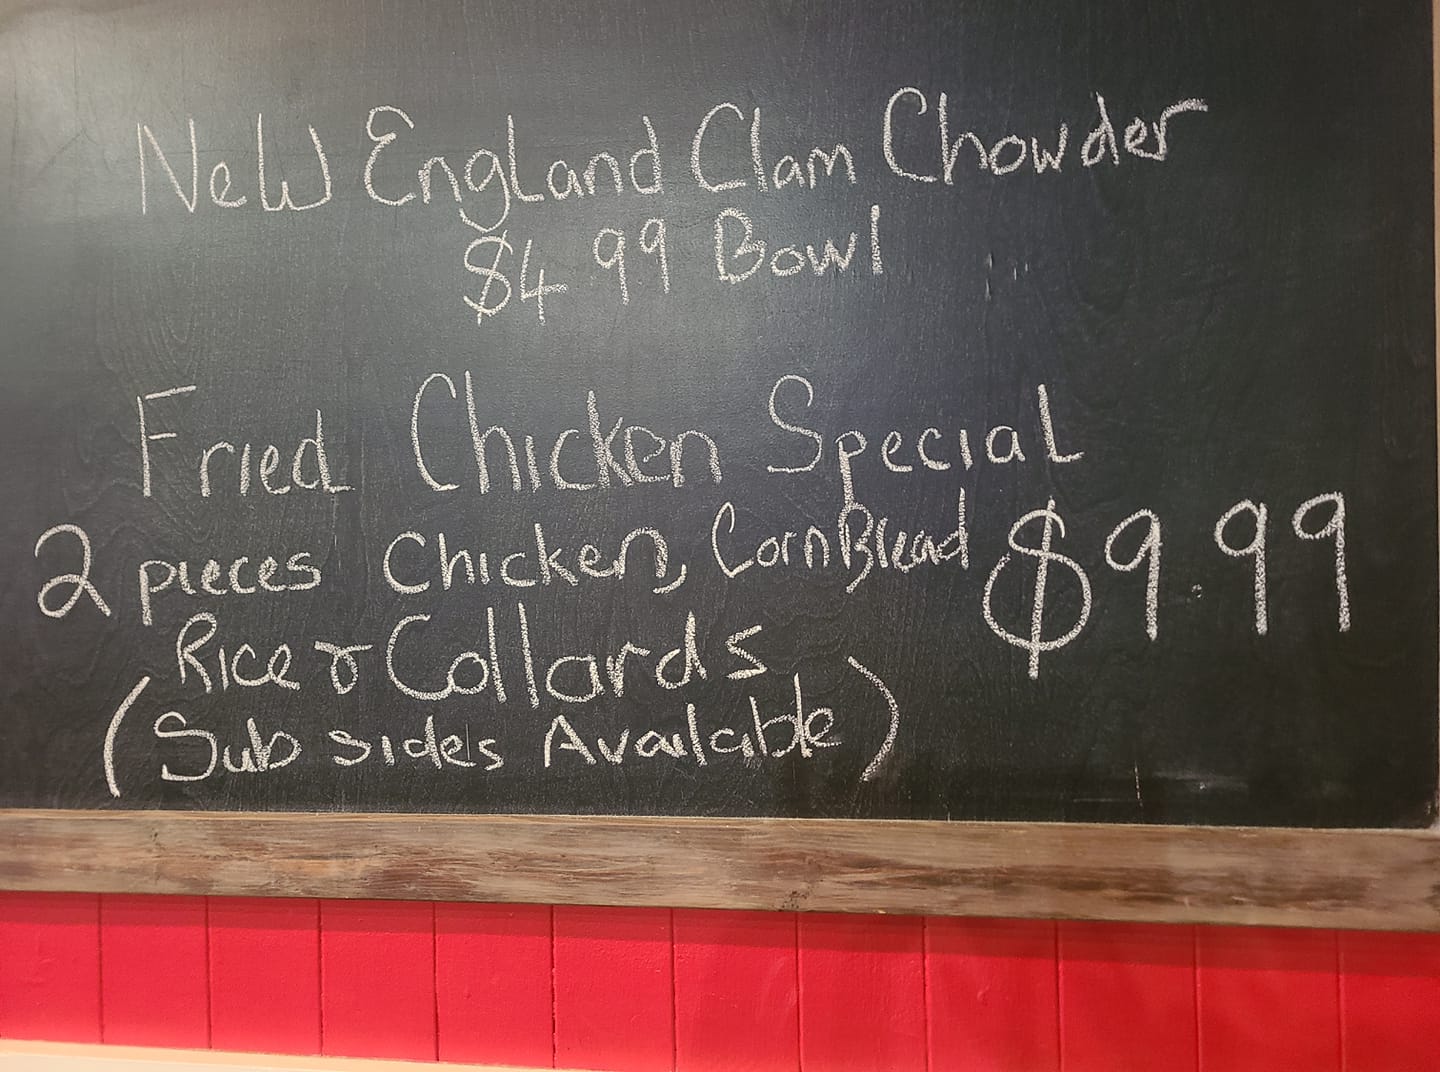 New England Clam Chowder
$4.99 Bowl
Fried Chicken Special
2 pieces Chicken, CornBread $9.99
Rice & Collards
(Sub sides Available)